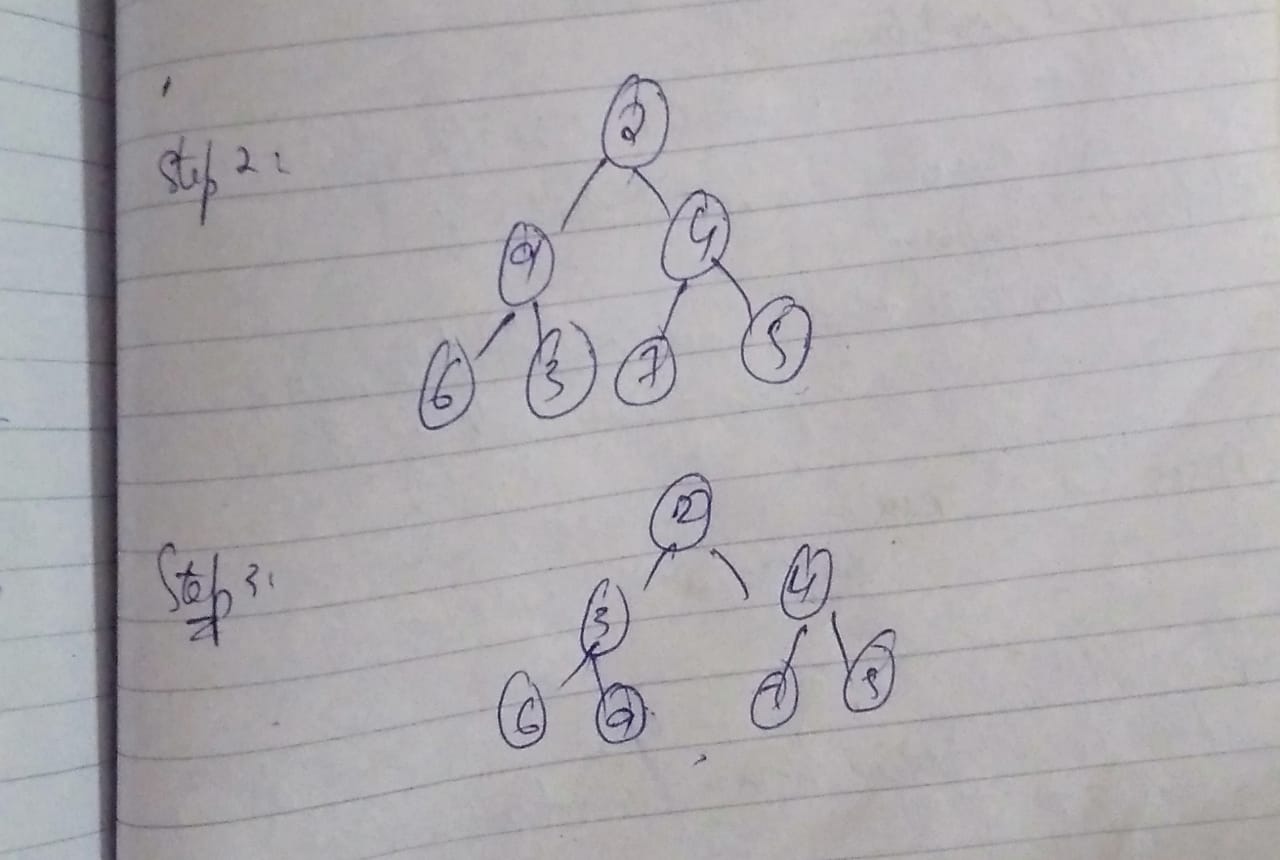 Step 2:
2
9 4
6 3 7 5
Step 3:
2
3 4
6 9 7 5